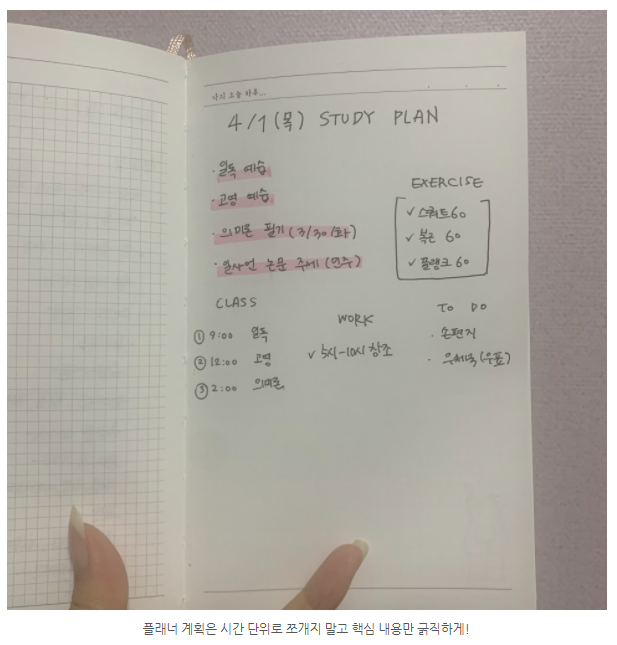 나의 오늘 하루...
4/1 (목) STUDY PLAN
· 일독 예습
· 고영 예습
· 의미론 필기 (3/30/화)
· 일사언 논문 주제 (연주)
EXERCISE
✓ 스쿼트 60
✓ 복근 60
✓ 플랭크 60
CLASS
① 9:00 일독
② 12:00 고영
③ 2:00 의미론
WORK
✓ 5시-10시 창조
TO DO
· 손편지
· 우체국 (우표)
플래너 계획은 시간 단위로 쪼개지 말고 핵심 내용만 굵직하게!